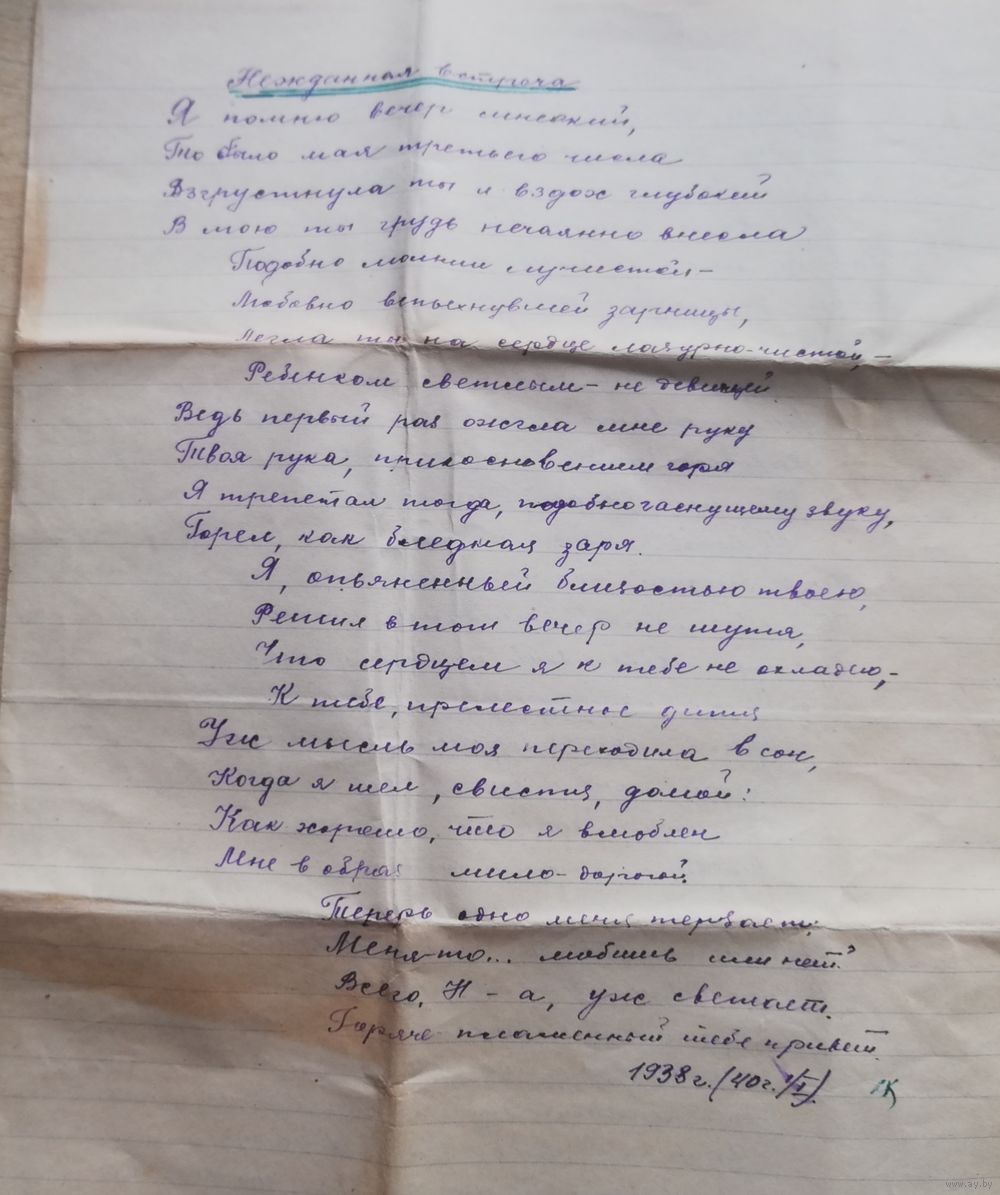 Нежданная встреча
Я помню вечер синеокий,
То было мая третьего числа
Взгрустнула ты и вздох глубокий
В мою ты грудь нечаянно внесла
Подобно молнии лучистой –
Любовно вспыхнувшей зарницы,
Легла ты на сердце лазурно-чистой, –
Ребенком светлым – не девицей.
Ведь первый раз ожгла мне руку
Твоя рука, прикосновением горя
Я трепетал тогда, подобно гаснущему звуку,
Горел, как бледная заря.
Я, опьяненный близостью твоею,
Решил в том вечер не шутя,
Что сердцем я к тебе не охладею, –
К тебе, прелестное дитя
Уж мысль моя переходила в сон,
Когда я шел, свистя, домой:
Как хорошо, что я влюблен
Мне в образ мило-дорогой.
Теперь одно меня терзает:
Меня-то... любишь или нет?
Всего, Н – а, уж светает.
Горяче пламенный тебе привет.
1938 г. (40 г. 1/I).
www.ay.by